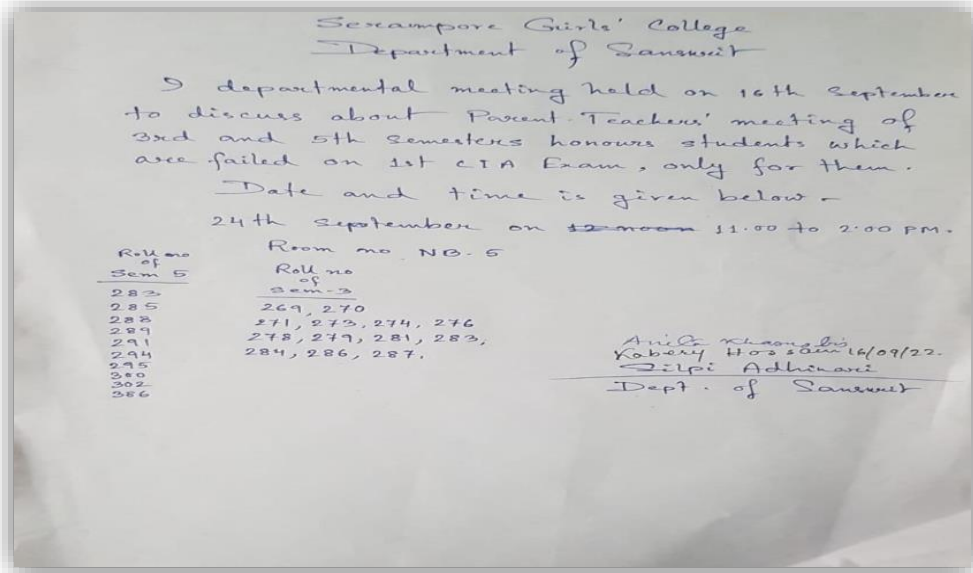 Serampore Girls' College
Department of Sanskrit
I departmental meeting held on 16th September
to discuss about Parent-Teachers' meeting of
3rd and 5th semesters honours students which
are failed on 1st CIA Exam, only for them.
Date and time is given below -
24th September on 12 noon 11.00 to 2.00 PM.
Room no NB-5
Roll no
of
Sem 5
283
285
288
289
291
294
295
300
302
386
Roll no
of
Sem-3
269, 270
271, 273, 274, 276
278, 279, 281, 283,
284, 286, 287.
Kabery Hossain 16/09/22.
Silpi Adhikari
Dept. of Sanskrit